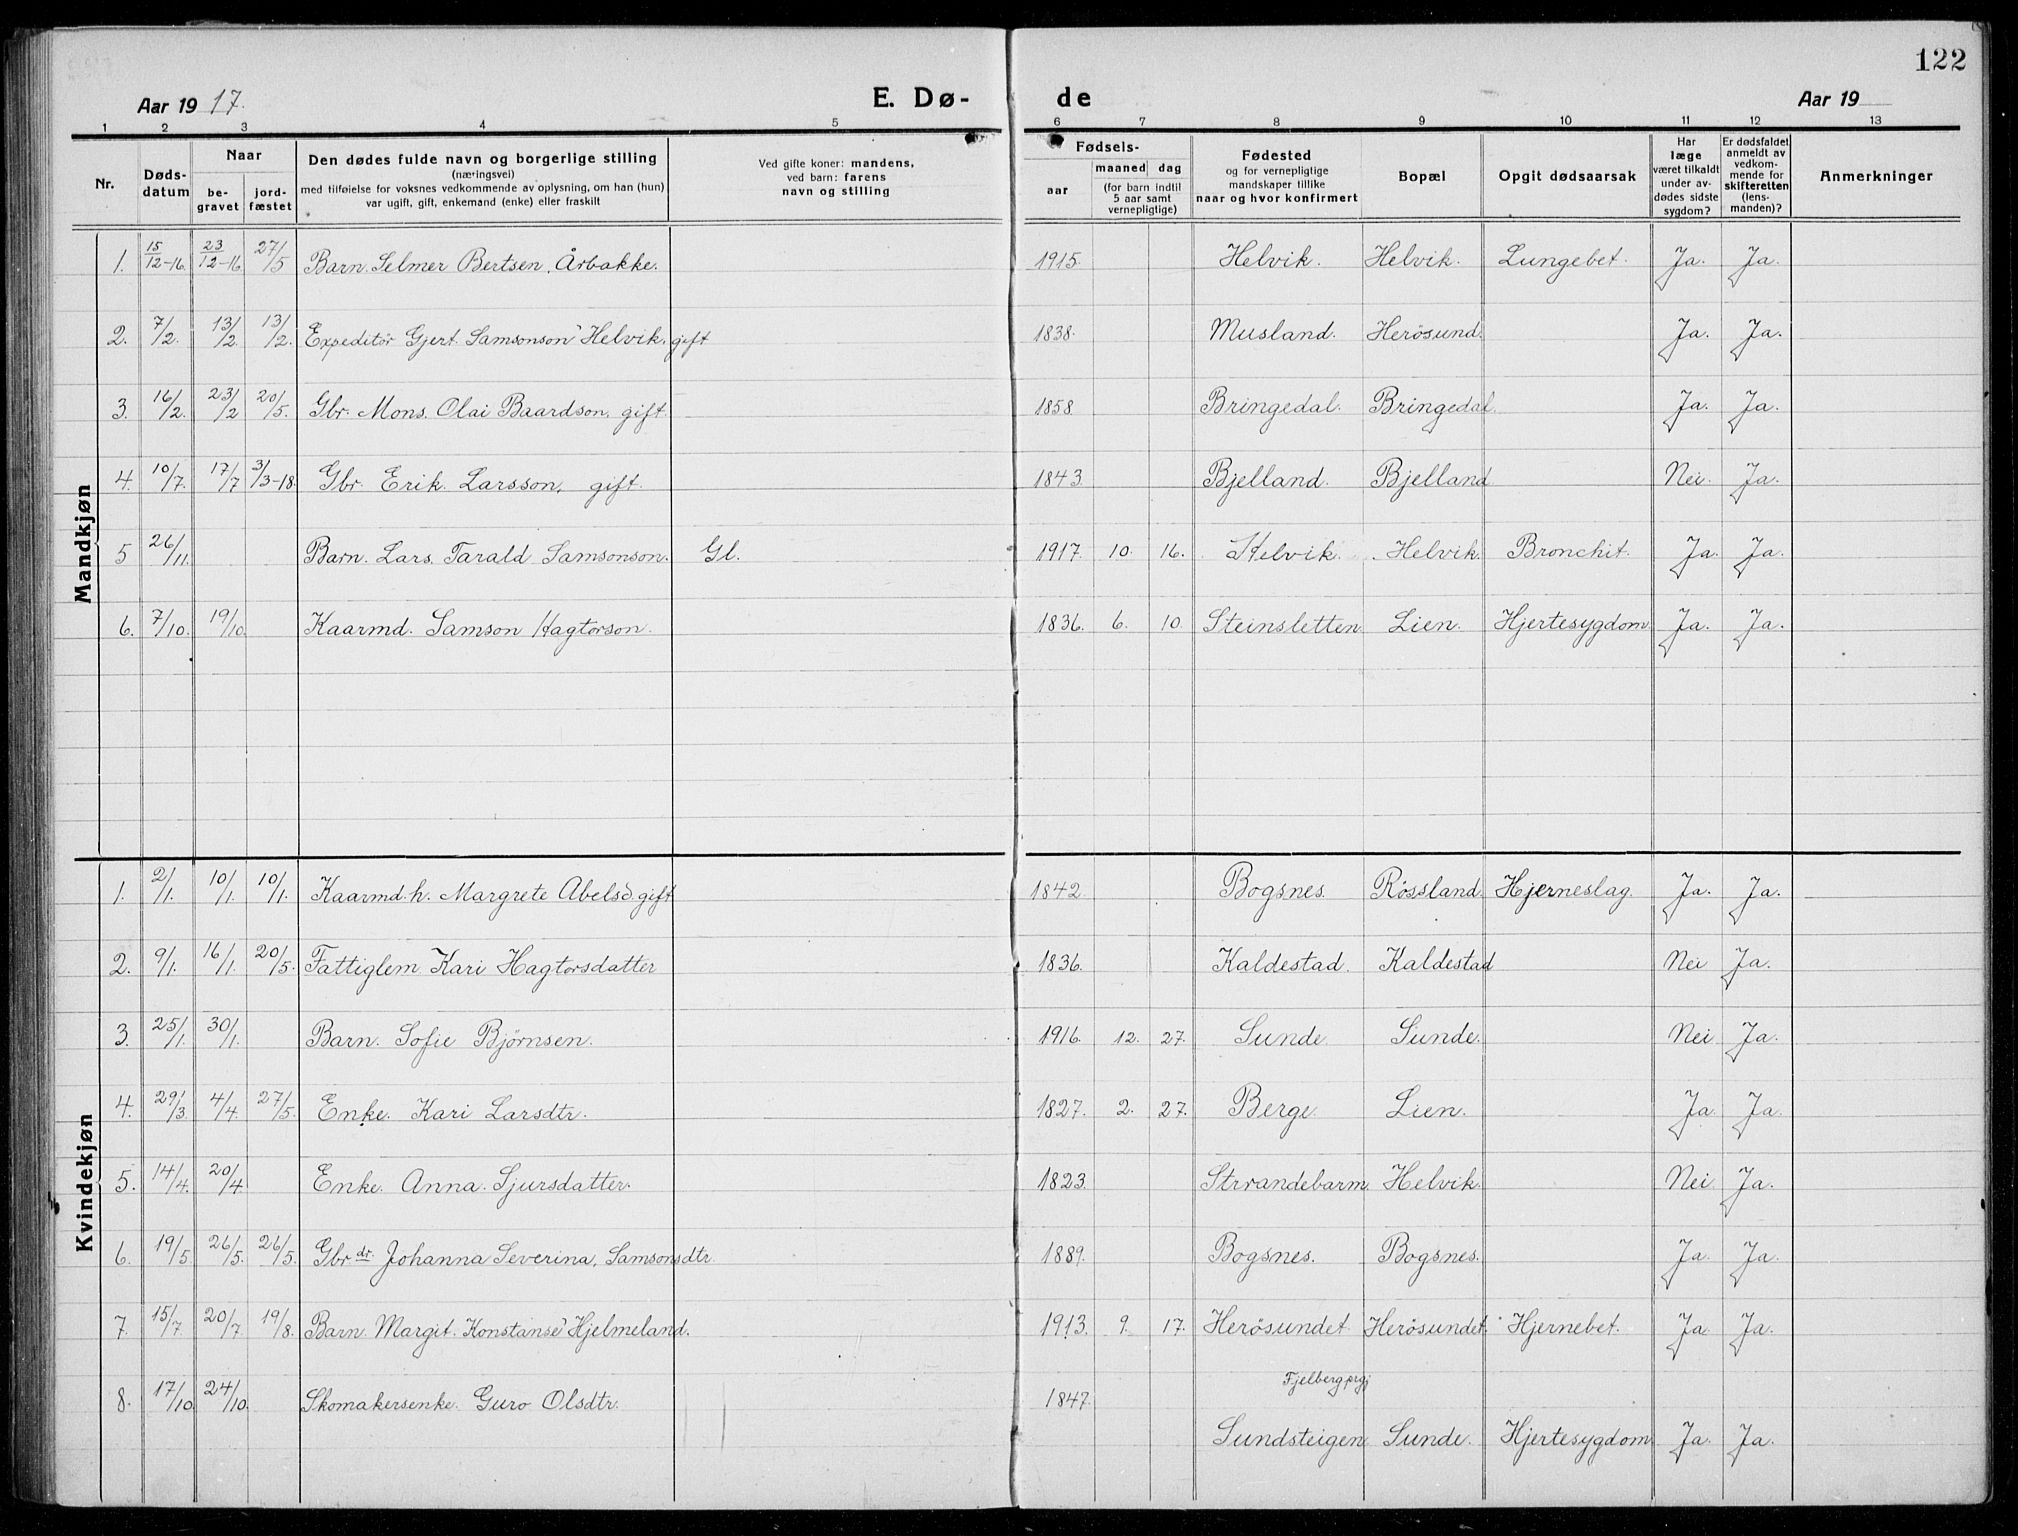 122
Aar 19 17.
E. Dø-
de
Aar 19
1 2 3 4 5 6 7 8 9 10 11 12 13
Nr.
Døds-
datum
Naar
be-
gravet
jord-
fæstet
Den dødes fulde navn og borgerlige stilling
(næringsvei)
med tilføielse for voksnes vedkommende av oplysning, om han (hun)
var ugift, gift, enkemand (enke) eller fraskilt
Ved gifte koner: mandens,
ved barn: farens
navn og stilling
Fødsels-
aar
maaned dag
(for barn indtil
5 aar samt
vernepligtige)
Fødested
og for vernepligtige
mandskaper tillike
naar og hvor konfirmert
Bopæl
Opgit dødsaarsak
Har
læge
været tilkaldt
under av-
dødes sidste
sygdom?
Er dødsfaldet
anmeldt av
vedkom-
mende for
skifteretten
(lens-
manden)?
Anmerkninger
Mandkjøn
1. 15/12-16 23/12-16 27/5 Barn. Selmer Bertsen, Årbakke. 1915. Helvik. Helvik. Lungebet. Ja. Ja.
2. 7/2. 13/2. 13/2. Expeditör Gjert Samsonson Helvik, gift 1838. Musland. Herösund. Ja. Ja.
3. 16/2. 23/2 20/5. Gbr. Mons. Olai Baardson, gift 1858 Bringedal. Bringedal. Ja. Ja.
4. 10/7. 17/7 3/3-18. Gbr. Erik. Larsson, gift. 1843. Bjelland. Bjelland Nei. Ja.
5 26/11. Barn. Lars. Tarald Samsonson. Gl. 1917. 10. 16. Helvik. Helvik. Bronchit. Ja. Ja.
6. 7/10. 19/10. Kaarmd. Samson Hagtorson. 1836. 6. 10. Steinsletten Lien. Hjertesygdom. Ja. Ja.
Kvindekjøn
1. 2/1. 10/1. 10/1. Kaarmd. h. Margrete Abelsd. gift 1842. Bogsnes. Røssland. Hjerneslag. Ja. Ja.
2. 9/1. 16/1. 20/5. Fattiglem Kari Hagtorsdatter 1836. Kaldestad. Kaldestad Nei Ja.
3. 25/1. 30/1. Barn. Sofie Bjørnsen. 1916. 12. 27. Sunde Sunde. Nei Ja.
4. 29/3. 4/4. 27/5. Enke. Kari Larsdtr. 1827. 2. 27. Berge Lien. Ja Ja.
5. 14/4. 20/4. Enke. Anna. Sjursdatter. 1823. Strrandebarm. Helvik. Nei Ja.
6. 19/5. 26/5. 26/5. Gbr dr. Johanna Severina, Samsonsdtr 1889. Bogsnes. Bogsnes. Ja. Ja.
7. 15/7. 20/7. 19/8. Barn. Margit. Konstanse Hjelmeland. 1913. 9. 17. Herösundet Herösundet. Hjernebet. Ja Ja.
Fjelberg prgj
8. 17/10. 24/10. Skomakersenke. Guro Olsdtr. 1847.
Sundsteigen Sunde. Hjertesygdom Ja. Ja.